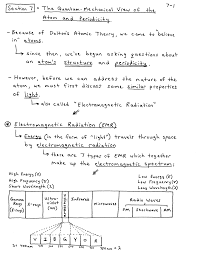 7-1
Section 7 - The Quantum-Mechanical View of the
Atom and Periodicity
- Because of Dalton's Atomic Theory, we came to believe
in atoms.
↳ since then, we've began asking questions about
an atom's structure and periodicity.
- However, before we can address the nature of the
atom, we must first discuss some similar properties
of light.
↳ also called "Electromagnetic Radiation"
Electromagnetic Radiation (EMR)
↳ Energy (in the form of "light") travels through space
by electromagnetic radiation
↳ there are 7 types of EMR which together
make up the electromagnetic spectrum:
High Energy (E) Low Energy (E)
High Frequency (ν) Low Frequency (ν)
Short Wavelength (λ) Long Wavelength (λ)
Gamma Rays X-rays Ultra-violet Infrared microwaves Radio Waves
FM AM
V I B G Y O R